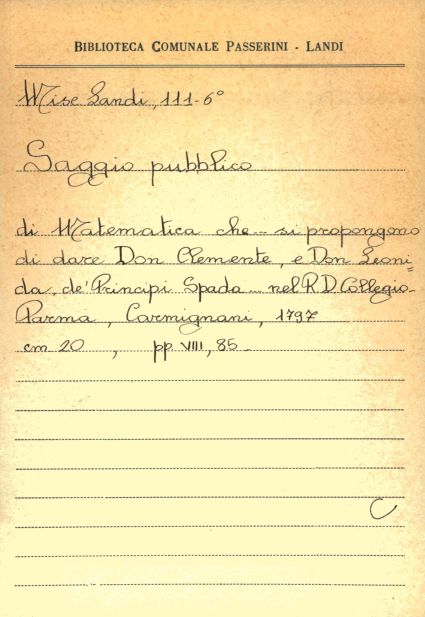 BIBLIOTECA COMUNALE PASSERINI - LANDI
Misc Landi, 111-6°
Saggio pubblico
di Matematica che -- si propongono
di dare Don Clemente, e Don Leoni=
da, de' Principi Spada -- nel R D Collegio-
Parma, Carmignani, 1797
cm 20 , pp VIII, 85-
C